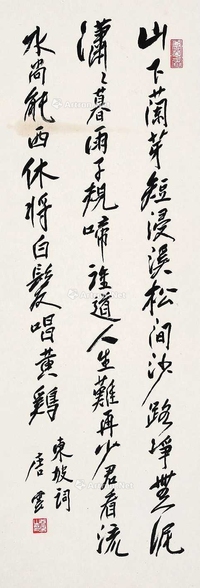 山下蘭芽短浸溪松間沙路淨無泥
瀟々暮雨子規啼誰道人生難再少君看流
水尚能西休將白髮唱黃鷄
東坡詞
唐雲